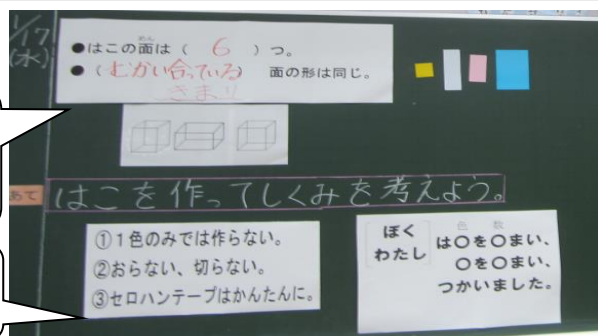 1/17
(水)
めん
●はこの面は（ 6 ）つ。
●（むかい合っている） 面の形は同じ。
きまり
めあて
はこを作ってしくみを考えよう。
①１色のみでは作らない。
②おらない、切らない。
③セロハンテープはかんたんに。
ぼく
わたし
色 数
は〇を〇まい、
〇を〇まい、
つかいました。